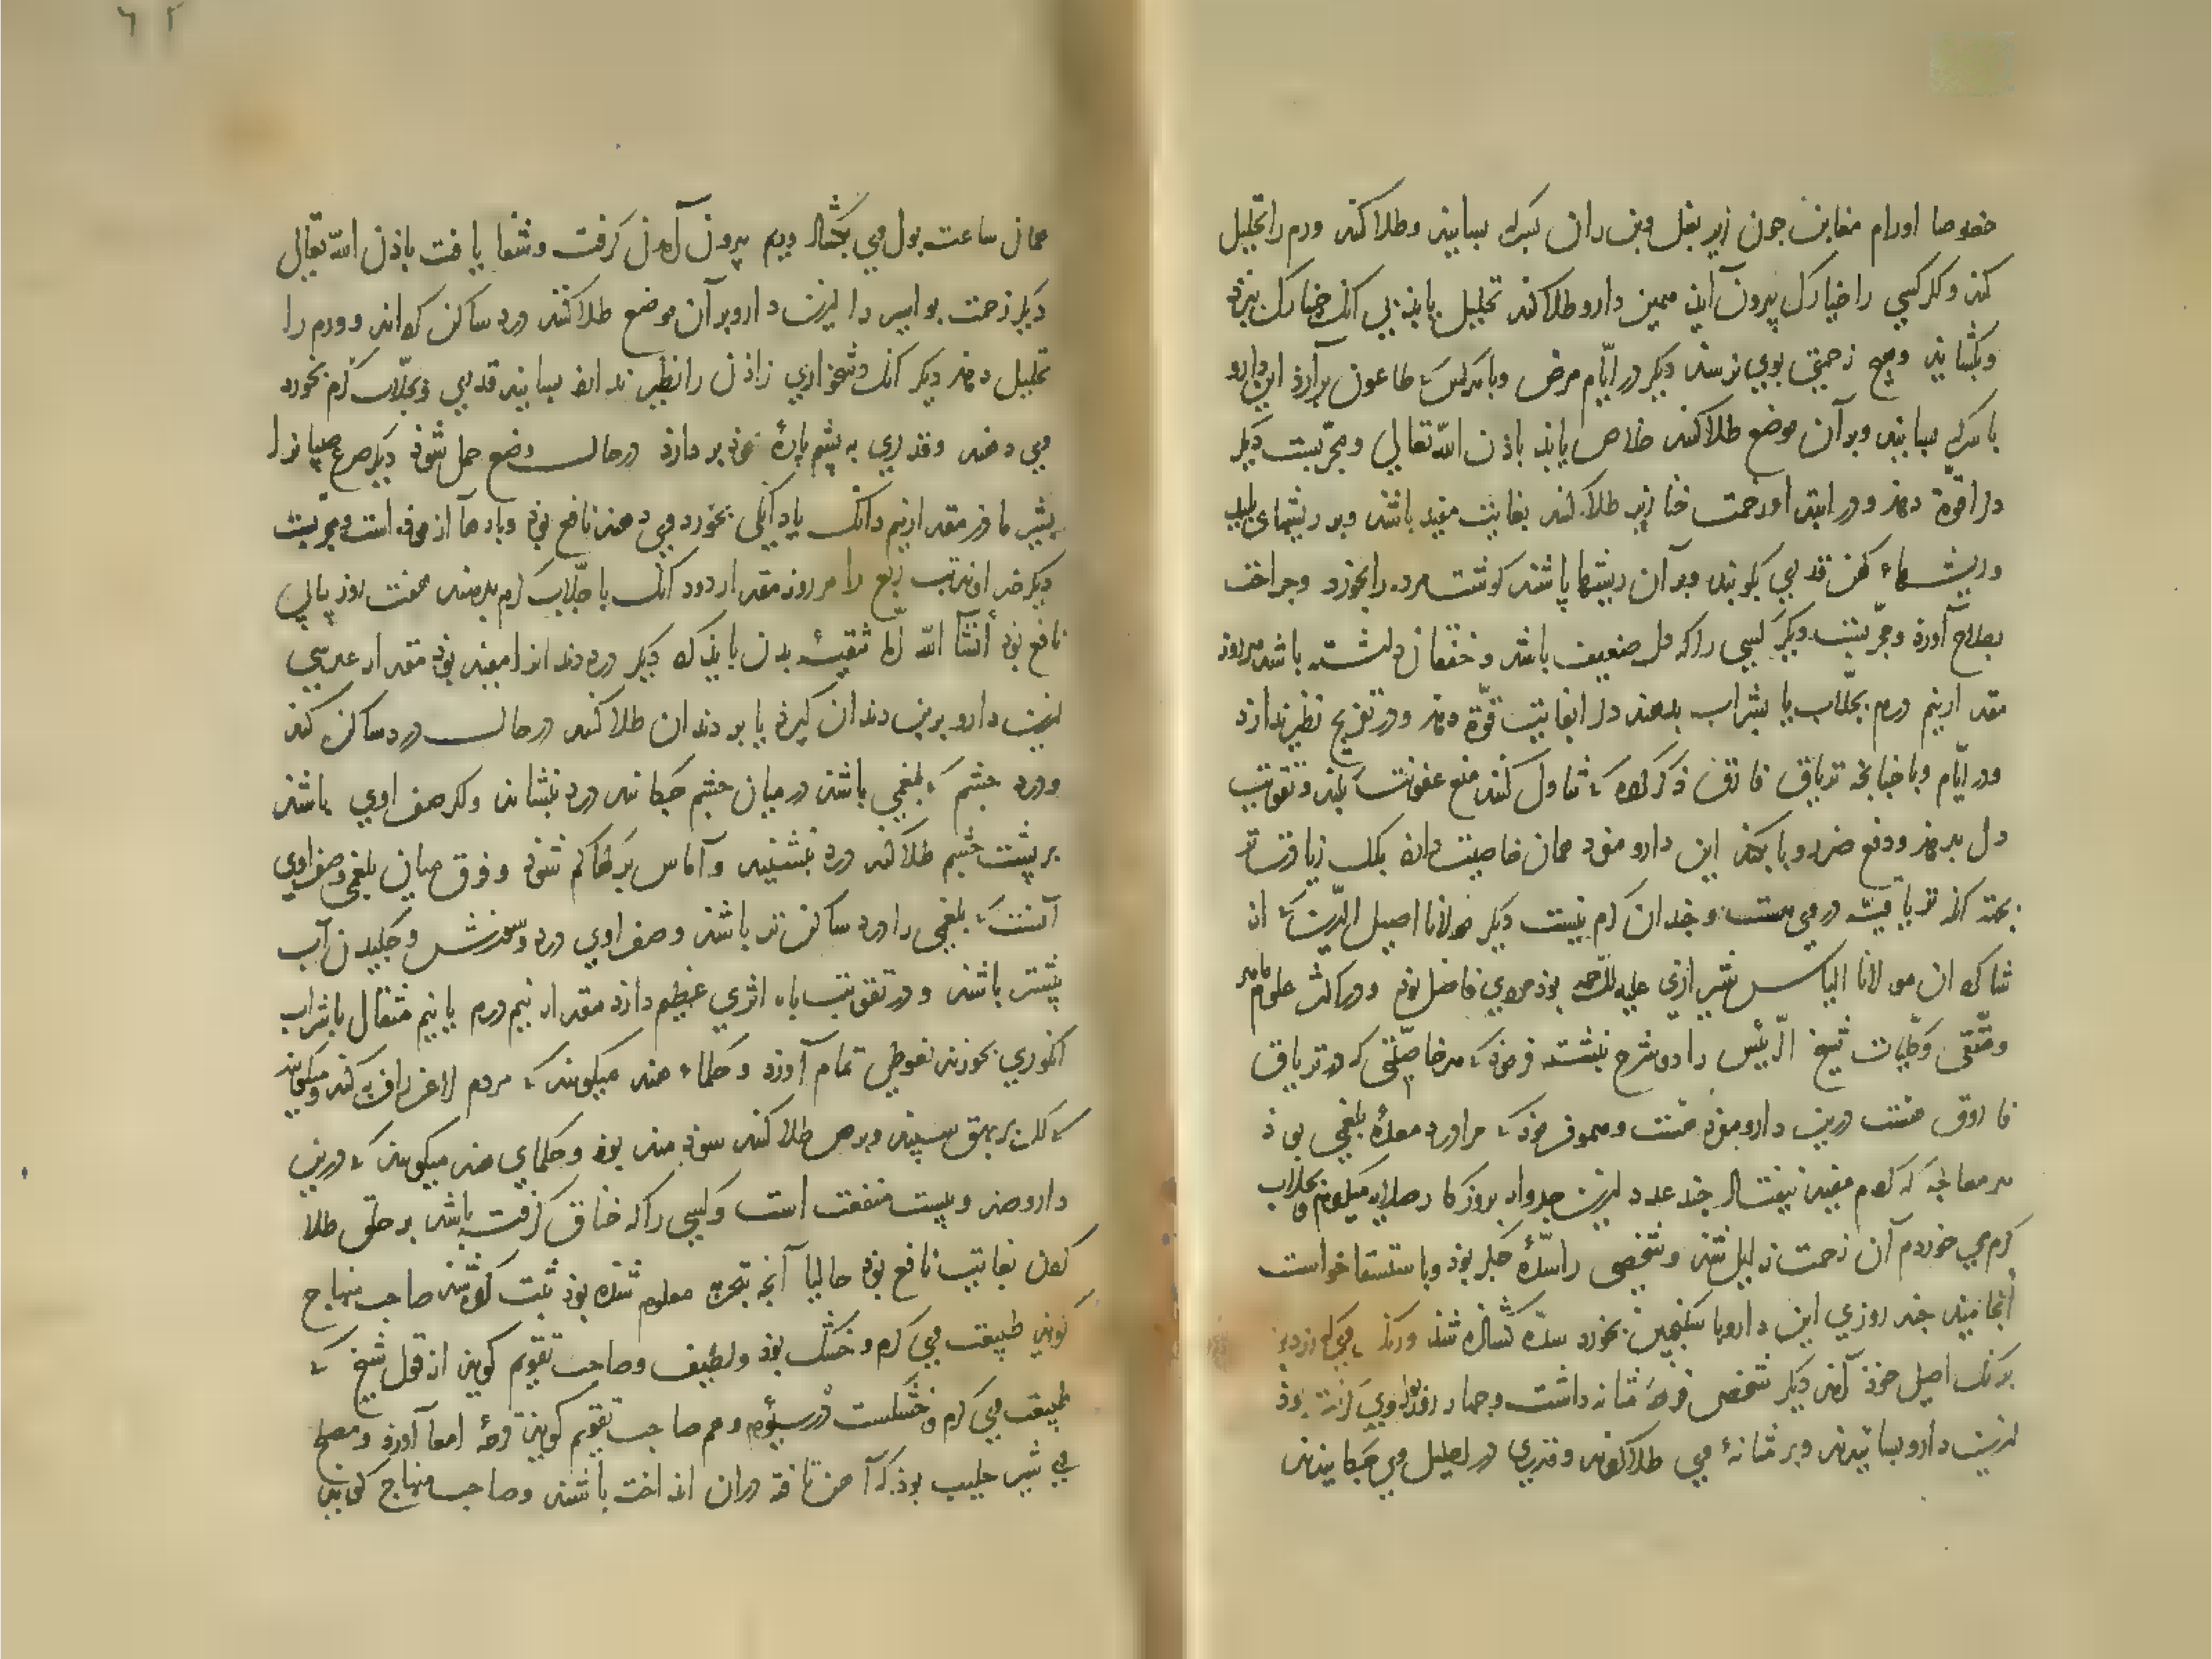 خصوصا اورام مغابن جون زیر بغل وبن ران بسرکه بسایند وطلا کنند ورم را تحلیل
کند وکر کسی را خیارک بیرون آید همین دارو طلا کند تحلیل یابد بی آنک خیارک بپزد
وبکشایند وهیچ زحمتی بوی نرسد دیکر در ایّام مرض وبا هرکس که طاعون برآرد این دارو
با سرکه بسایند وبر آن موضع طلا کنند خلاص یابد باذن اللّه تعالی ومجرّبست دیکر
دل را قوّة دهد ودر ابتدا زحمت خنازیر طلا کنند بغایت مفید باشد وبر ریشهای پلید
وریشهاء کهن قدری بکوبند وبر آن ریشها پاشند کوشت مرده را بخورد وجراحت
بصلاح آورد ومجرّبست دیکر کسی را که دل ضعیف باشد وخفقان داشته باشد هر روز
مقدار نیم درم بجلّاب یا بشراب بدهند دل را بغایت قوّة دهد ودر تفریح نظیر ندارد
ودر ایّام وبا جنانجه تریاق فاروق ذکر کرده که تناول کنند منع عفونت بکند وتقویت
دل بدهد ودفع ضرر وبا بکند این دارو مفرد همان خاصیت دارد بلک زیادت تر
بجهة آنک تریاقیّة در وی هست وجندان کرم نیست دیکر مولانا اصیل الدّین که از
شاکردان مولانا الیاس شیرازی علیه الرّحمه بوذ مردی فاضل بوذ ودر اکثر علوم ماهر
ومتّقی وکلّیات شیخ الرّئیس را دو شرح نبشته فرموذ که هر خاصیّتی که در تریاق
فاروق هست درین دارو مفرد هست وهمو فرموذ که مرا درد معدهٔ بلغمی بوذ
هر معالجه که کردم مفید نیفتاد جند عدد ازین جدوار بروزکار صلایه میکردم وبجلاب
کرم می خوردم آن زحمت زایل شد وشخصی را سدّهٔ جکر بوذ وباستسقا خواست
انجامید جند روزی این دارو با سکنجبین بخورد سدّه کشاده شد ورنک وی که زرد بوذ
برنک اصیل خوذ آمد دیکر شخصی قرحهٔ مثانه داشت وجهار روز بول وی کرفته بوذ
ازین دارو بسائیدند وبر مثانهٔ وی طلا کردند وقدری در احلیل وی جکانیدند
همان ساعت بول وی بکشاد وریم بیرون آمدن کرفت وشفا یافت باذن اللّه تعالی
دیکر زحمت بواسیر را ازین دارو بر آن موضع طلا کنند درد ساکن کرداند وورم را
تحلیل دهد دیکر آنک دشخواری زاذن را نظیر ندارد بسایند قدری وبجلّاب کرم بخورد
وی دهند وقدری به پشم پارهٔ خوذ بر دارذ در حال وضع حمل شوذ دیکر صرع صبیان را
بشیر ماذر مقدار نیم دانک یا دانکی بخورد وی دهند نافع بوذ وبارها آزموده است ومجرّبست
دیکر خداوند تب ربع را هر روز مقدار دو دانک با جلّاب کرم بدهند هفت روز پیاپی
نافع بوذ انشآ اللّه امّا تنقیهٔ بدن بایذ کرد دیکر درد دندانرا مفید بوذ مقدار عدسی
ازین دارو بر بن دندان کیرذ یا بر دندان طلا کنند در حال درد ساکن کند
ودرد جشم که بلغمی باشد در میان جشم جکانند درد بنشاند وکر صفراوی باشد
بر پشت جشم طلا کنند درد بنشیند وآماس پلکها کم شوذ وفرق میان بلغمی وصفراوی
آنست که بلغمی را درد ساکن تر باشد وصفراوی درد وسوزش وجکیدن آب
بیشتر باشد ودر تقویت باه اثری عظیم دارد مقدار نیم درم یا نیم مثقال با شراب
انکوری بخورند نعوظی تمام آورد وحکماء هند میکویند که مردم لاغر را فربه کند ومیکویند
که کلف وبهق سپید وبرص طلا کنند سودمند بوذ وحکمای هند میکویند که درین
دارو صد وبیست منفعت است وکسی را که خناق کرفته باشد بر حلق طلا
کردن بغایت نافع بوذ حالیا آنجه بتجربه معلوم شده بوذ ثبت کرده شد صاحب منهاج
کوید طبیعت وی کرم وخشک بوذ ولطیف وصاحب تقویم کوید از قول شیخ که
طبیعت وی کرم وخشکست در سیوم وهم صاحب تقویم کوید قرحهٔ امعا آورد ومصلح
وی شیر حلیب بوذ که آهن تافته در آن انداخته باشند وصاحب منهاج کوید